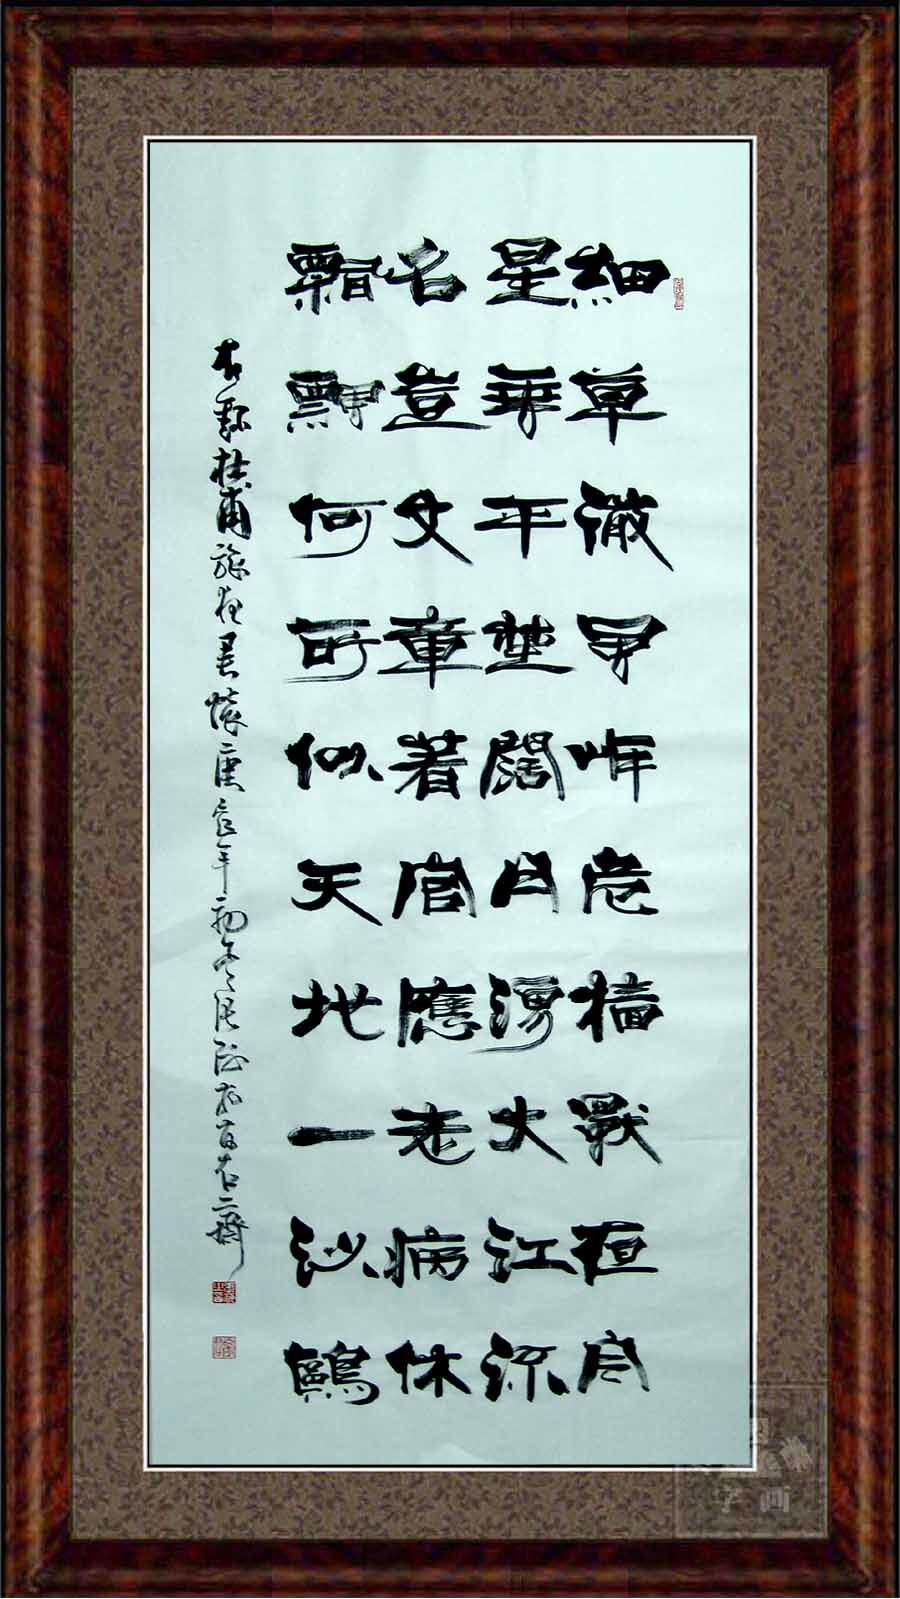 細草微風岸危檣獨夜舟
星垂平野闊月湧大江流
名豈文章著官應老病休
飄飄何所似天地一沙鷗
右録杜甫旅夜書懷庚辰年初冬